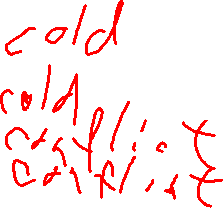 cold
cold
conflict
conflict